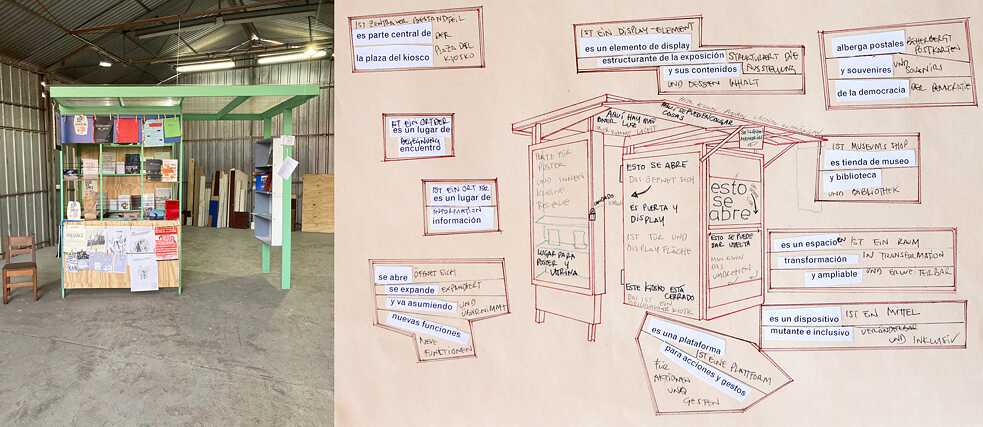 IST ZENTRALER BESTANDTEIL
es parte central de DER
la plaza del kiosco PLAZA DEL KIOSKO
IST EIN DISPLAY-ELEMENT
es un elemento de display
estructurante de la exposición STRUKTURIERT DIE
y sus contenidos AUSSTELLUNG
UND DESSEN INHALT
alberga postales BEHERBERGT POSTKARTEN
y souvenires UND SOUVENIRS
de la democracia DER DEMOCRATIE
IST EIN ORT DER
es un lugar de
BEGEGNUNG
encuentro
IST EIN ORT FÜR
es un lugar de
INFORMATION
información
IST MUSEUMS SHOP
es tienda de museo
y biblioteca
UND BIBLIOTHEK
es un espacio en IST EIN RAUM
transformación IN TRANSFORMATION
y ampliable UND ERWEITERBAR
es un dispositivo IST EIN MITTEL
mutante e inclusivo VERÄNDERBAR
UND INKLUSIV
se abre ÖFFNET SICH
se expande EXPANDIERT
y va asumiendo UND ÜBERNIMMT
nuevas funciones
NEUE FUNKTIONEN
es una plataforma
IST EINE PLATTFORM
para acciones y gestos
FÜR
AKTIONEN
UND
GESTEN
AQUÍ HAY
LUZ
AQUÍ SE PUEDEN COLGAR
COSAS
ESTO SE ABRE
DAS ÖFFNET SICH
ES PUERTA Y
DISPLAY
IST TÜR UND
DISPLAY FLÄCHE
ESTE KIOSKO ESTÁ
CERRADO
esto
se
abre
ESTO SE PUEDE
DAR VUELTA
MAN KANN
DAS
UMDREHEN
CANDADO
LUGAR PARA
POSTER Y
VITRINA